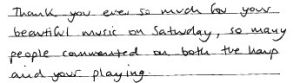 Thank you ever so much for your
beautiful music on Saturday, so many
people commented on both the harp
and your playing